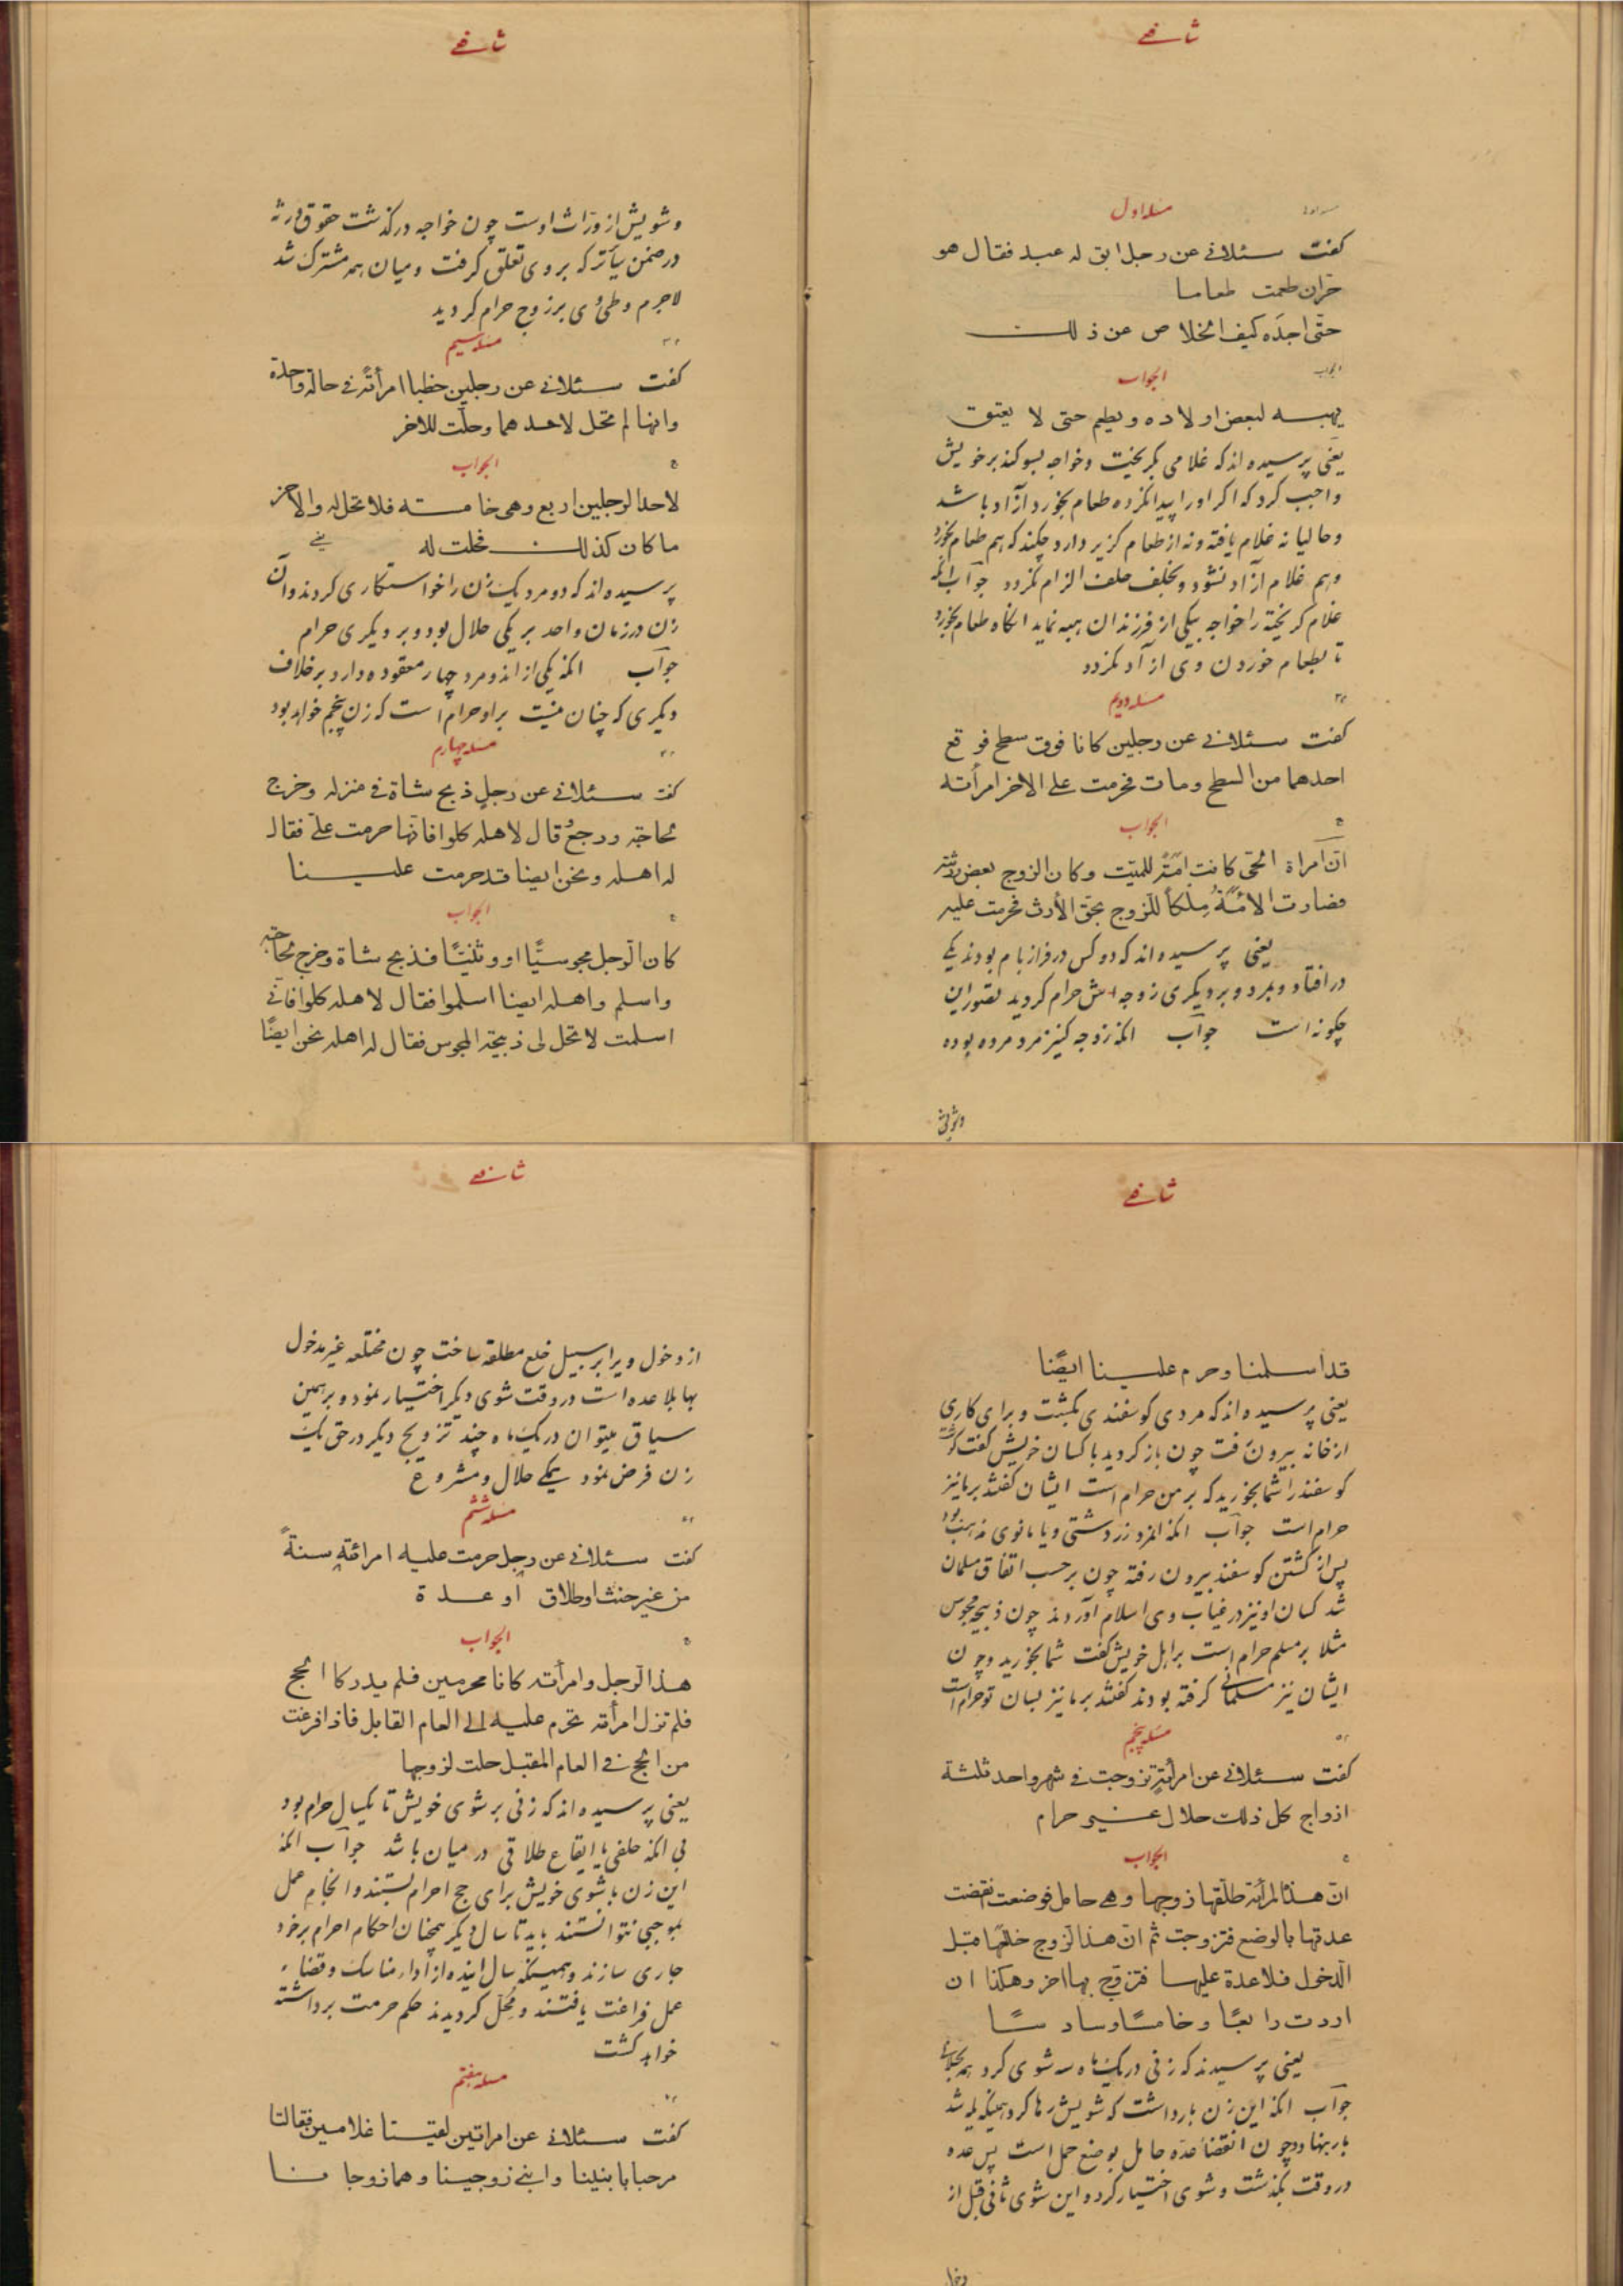 شافعی
مسئله اول
کفت سئلانی عن رجل ابق له عبد فقال هو
حرّ ان طعمت طعاما
حتّی اجده کیف الخلاص عن ذلک
الجواب
یهبه لبعض اولاده و یطعم حتی لا یعتق
یعنی پرسیده‌اند که غلامی بکریخت و خواجه بسوکند بر خویش
واجب کرد که اکر او را پیدا نکرده طعام بخورد آزاد باشد
و حالیا نه غلام یافته و نه از طعام کزیر دارد چکند که هم طعام بخورد
و هم غلام آزاد نشود و بخلف حلف الزام نکردد جواب آنکه
غلام کریخته را خواجه بیکی از فرزندان هبه نماید آنکاه طعام بخورد
تا بطعام خوردن وی آزاد نکردد
مسئله دویم
کفت سئلانی عن رجلین کانا فوق سطح فوقع
احدهما من السطح و مات فحرمت علی الاخر امرأته
الجواب
انّ امراة الحی کانت امة للمیّت و کان الزوج بعض ورثته
فصارت الامة ملکاً للزوج بحق الأرث فحرمت علیه
یعنی پرسیده‌اند که دو کس در فراز بام بودند یکی
در افتاد و بمرد و بر دیکری زوجه‌اش حرام کردید تصویر این
چکونه است جواب آنکه زوجه کنیز مرد مرده بوده
وشویش
شافعی
و شویش از ورّاث اوست چون خواجه درکذشت حقوق ورثه
در ضمن سایر ترکه بروی تعلق کرفت و میان همه مشترک شد
لاجرم وطئ وی بر زوج حرام کردید
مسئله سیم
کفت سئلانی عن رجلین خطبا امرأة فی حالة واحدة
و انها لم تحل لاحدهما و حلّت للاخر
الجواب
لاحد الرجلین اربع و هی خامسته فلا تحل له و الآخر
ما کان کذلک فحلت له یعنی
پرسیده‌اند که دو مرد یک زن را خواستکاری کردند و آن
زن در زمان واحد بر یکی حلال بود و بر دیکری حرام
جواب آنکه یکی از آندو مرد چهار معقوده دارد بر خلاف
دیکری که چنان نیست بر او حرام است که زن پنجم خواهد بود
مسئله چهارم
کفت سئلانی عن رجلٍ ذبح شاة فی منزله و خرج
لحاجته و رجع و قال لاهله کلوا فانّها حرمت علیّ فقال
له اهله و نحن ایضا قد حرمت علینا
الجواب
کان الرجل مجوسیًّا او وثنیًّا فذبح شاة و خرج لحاجته
و اسلم و اهله ایضا اسلموا فقال لاهله کلوا فانّی
اسلمت لا تحل لی ذبیحة المجوس فقال له اهله نحن ایضًا
شافعی
قد اسلمنا و حرم علینا ایضًا
یعنی پرسیده‌اند که مردی کوسفندی بکشت و برای کاری
از خانه بیرون رفت چون باز کردید با کسان خویش کفت کوشت
کوسفند را شما بخورید که بر من حرام است ایشان کفتند بر ما نیز
حرام است جواب آنکه المرد زردشتی و یا مانوی مذهب بود
پس از کشتن کوسفند بیرون رفته چون بر حسب اتفاق مسلمان
شد کسان او نیز در غیاب وی اسلام آوردند چون ذبیحه مجوس
مثلا بر مسلم حرام است بر اهل خویش کفت شما بخورید و چون
ایشان نیز مسلمانی کرفته بودند کفتند بر ما نیز بسان تو حرام است
مسئله پنجم
کفت سئلانی عن امرأة تزوجت فی شهر واحد ثلثة
ازواج کل ذلک حلال غیر حرام
الجواب
انّ هذا المرأة طلّقها زوجها و هی حامل فوضعت انقضت
عدتها بالوضع فتزوجت ثم انّ هذا الزوج خلعها قبل
الدخول فلا عدة علیها فتزوّج بها اخر و هکذا ان
اردت رابعًا و خامسًا و سادسًا
یعنی پرسیدند که زنی در یک ماه سه شوی کرد همه بحلالی
جواب آنکه این زن بار داشت که شویش رها کرد همینکه یله شد
بار بنهاد و چون انقضاء عده حامل بوضع حمل است پس عده
در وقت بکذشت و شوی اختیار کرد و این شوی ثانی قبل از
شافعی
از دخول ویرا بر سبیل خلع مطلقه ساخت چون مختلعه غیر مدخول
بها بلا عده است در وقت شوی دیکر اختیار نمود و بر همین
سیاق میتوان در یک ماه چند تزویج دیکر در حق یک
زن فرض نمود یکی حلال و مشروع
مسئله ششم
کفت سئلانی عن رجل حرمت علیه امراته سنةً
من غیر حنث او طلاق او عدة
الجواب
هذا الرجل و امرأته کانا محرمین فلم یدرکا الحج
فلم تزل امرأته تحرم علیه الی العام القابل فاذا فرغت
من الحج فی العام المقبل حلت لزوجها
یعنی پرسیده‌اند که زنی بر شوی خویش تا یکسال حرام بود
بی آنکه حلفی یا ایقاع طلاقی در میان باشد جواب آنکه
این زن با شوی خویش برای حج احرام بستند و انجام عمل
بموجبی نتوانستند باید تا سال دیکر همچنان احکام احرام بر خود
جاری سازند و همینکه سال آینده از اداء مناسک و قضاء
عمل فراغت یافتند و مُحِلّ کردیدند حکم حرمت برداشته
خواهد کشت
مسئله هفتم
کفت سئلانی عن امراتین لقیتا غلامین فقالتا
مرحبا بابنینا و ابنی زوجینا و هما زوجانا